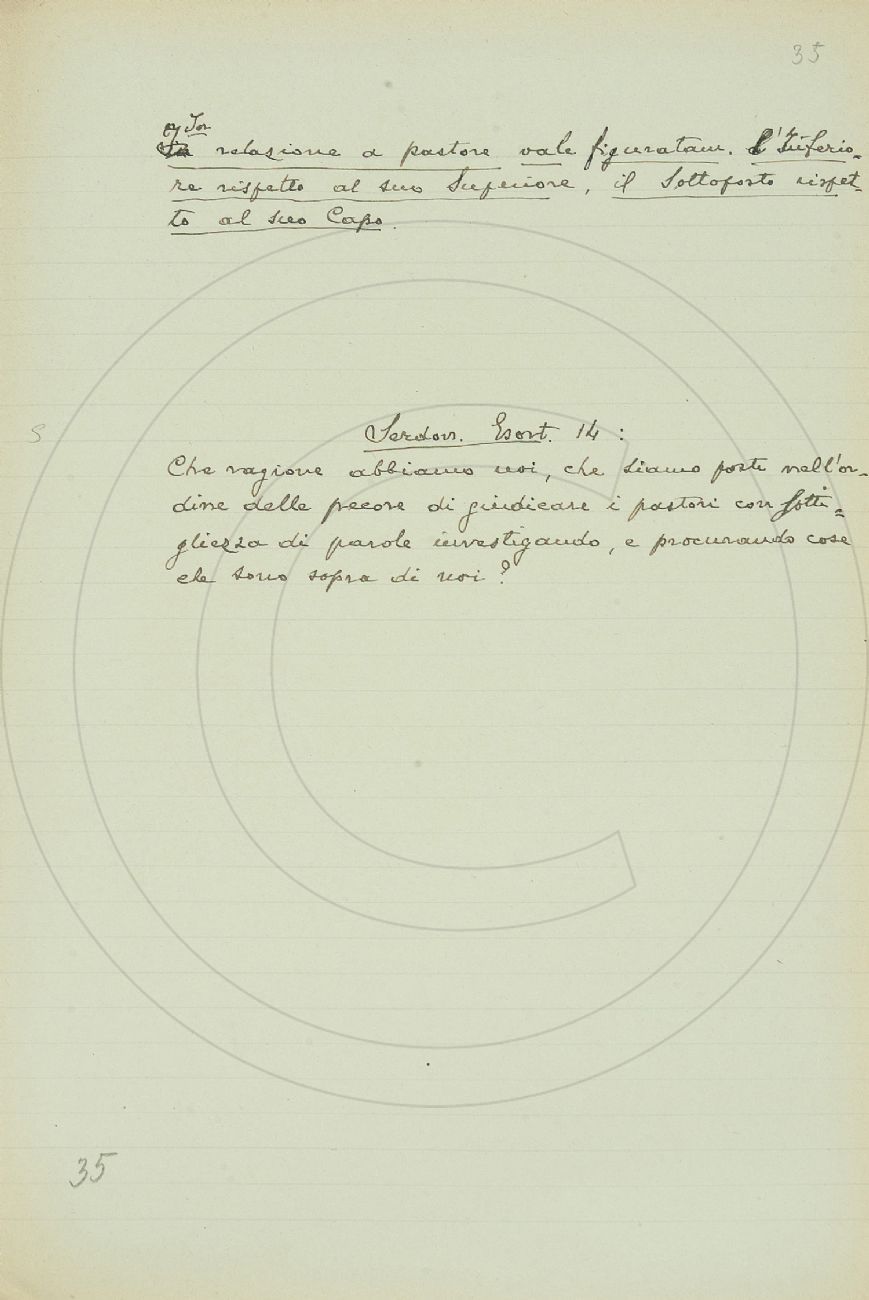 35
relazione a pastore vale figuratam. l'Inferio-
re rispetto al suo Superiore, il Sottoposto rispet-
to al suo Capo.
S
Serdon. Esort. 14:
Che ragione abbiamo noi, che siamo posti nell'or-
dine delle pecore di giudicare i pastori con sotti-
gliezza di parole investigando, e procurando cose
che sono sopra di noi?
35